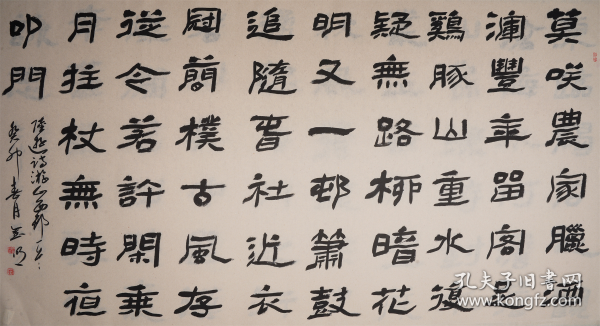 莫咲農家臘酒
渾豐年留客足
鷄豚山重水複
疑無路柳暗花
明又一邨簫鼓
追隨春社近衣
冠簡樸古風存
從今若許閑乘
月拄杖無時夜
叩門
陸游詩游山西邨一首
癸卯春月
孔夫子旧书网
www.kongfz.com